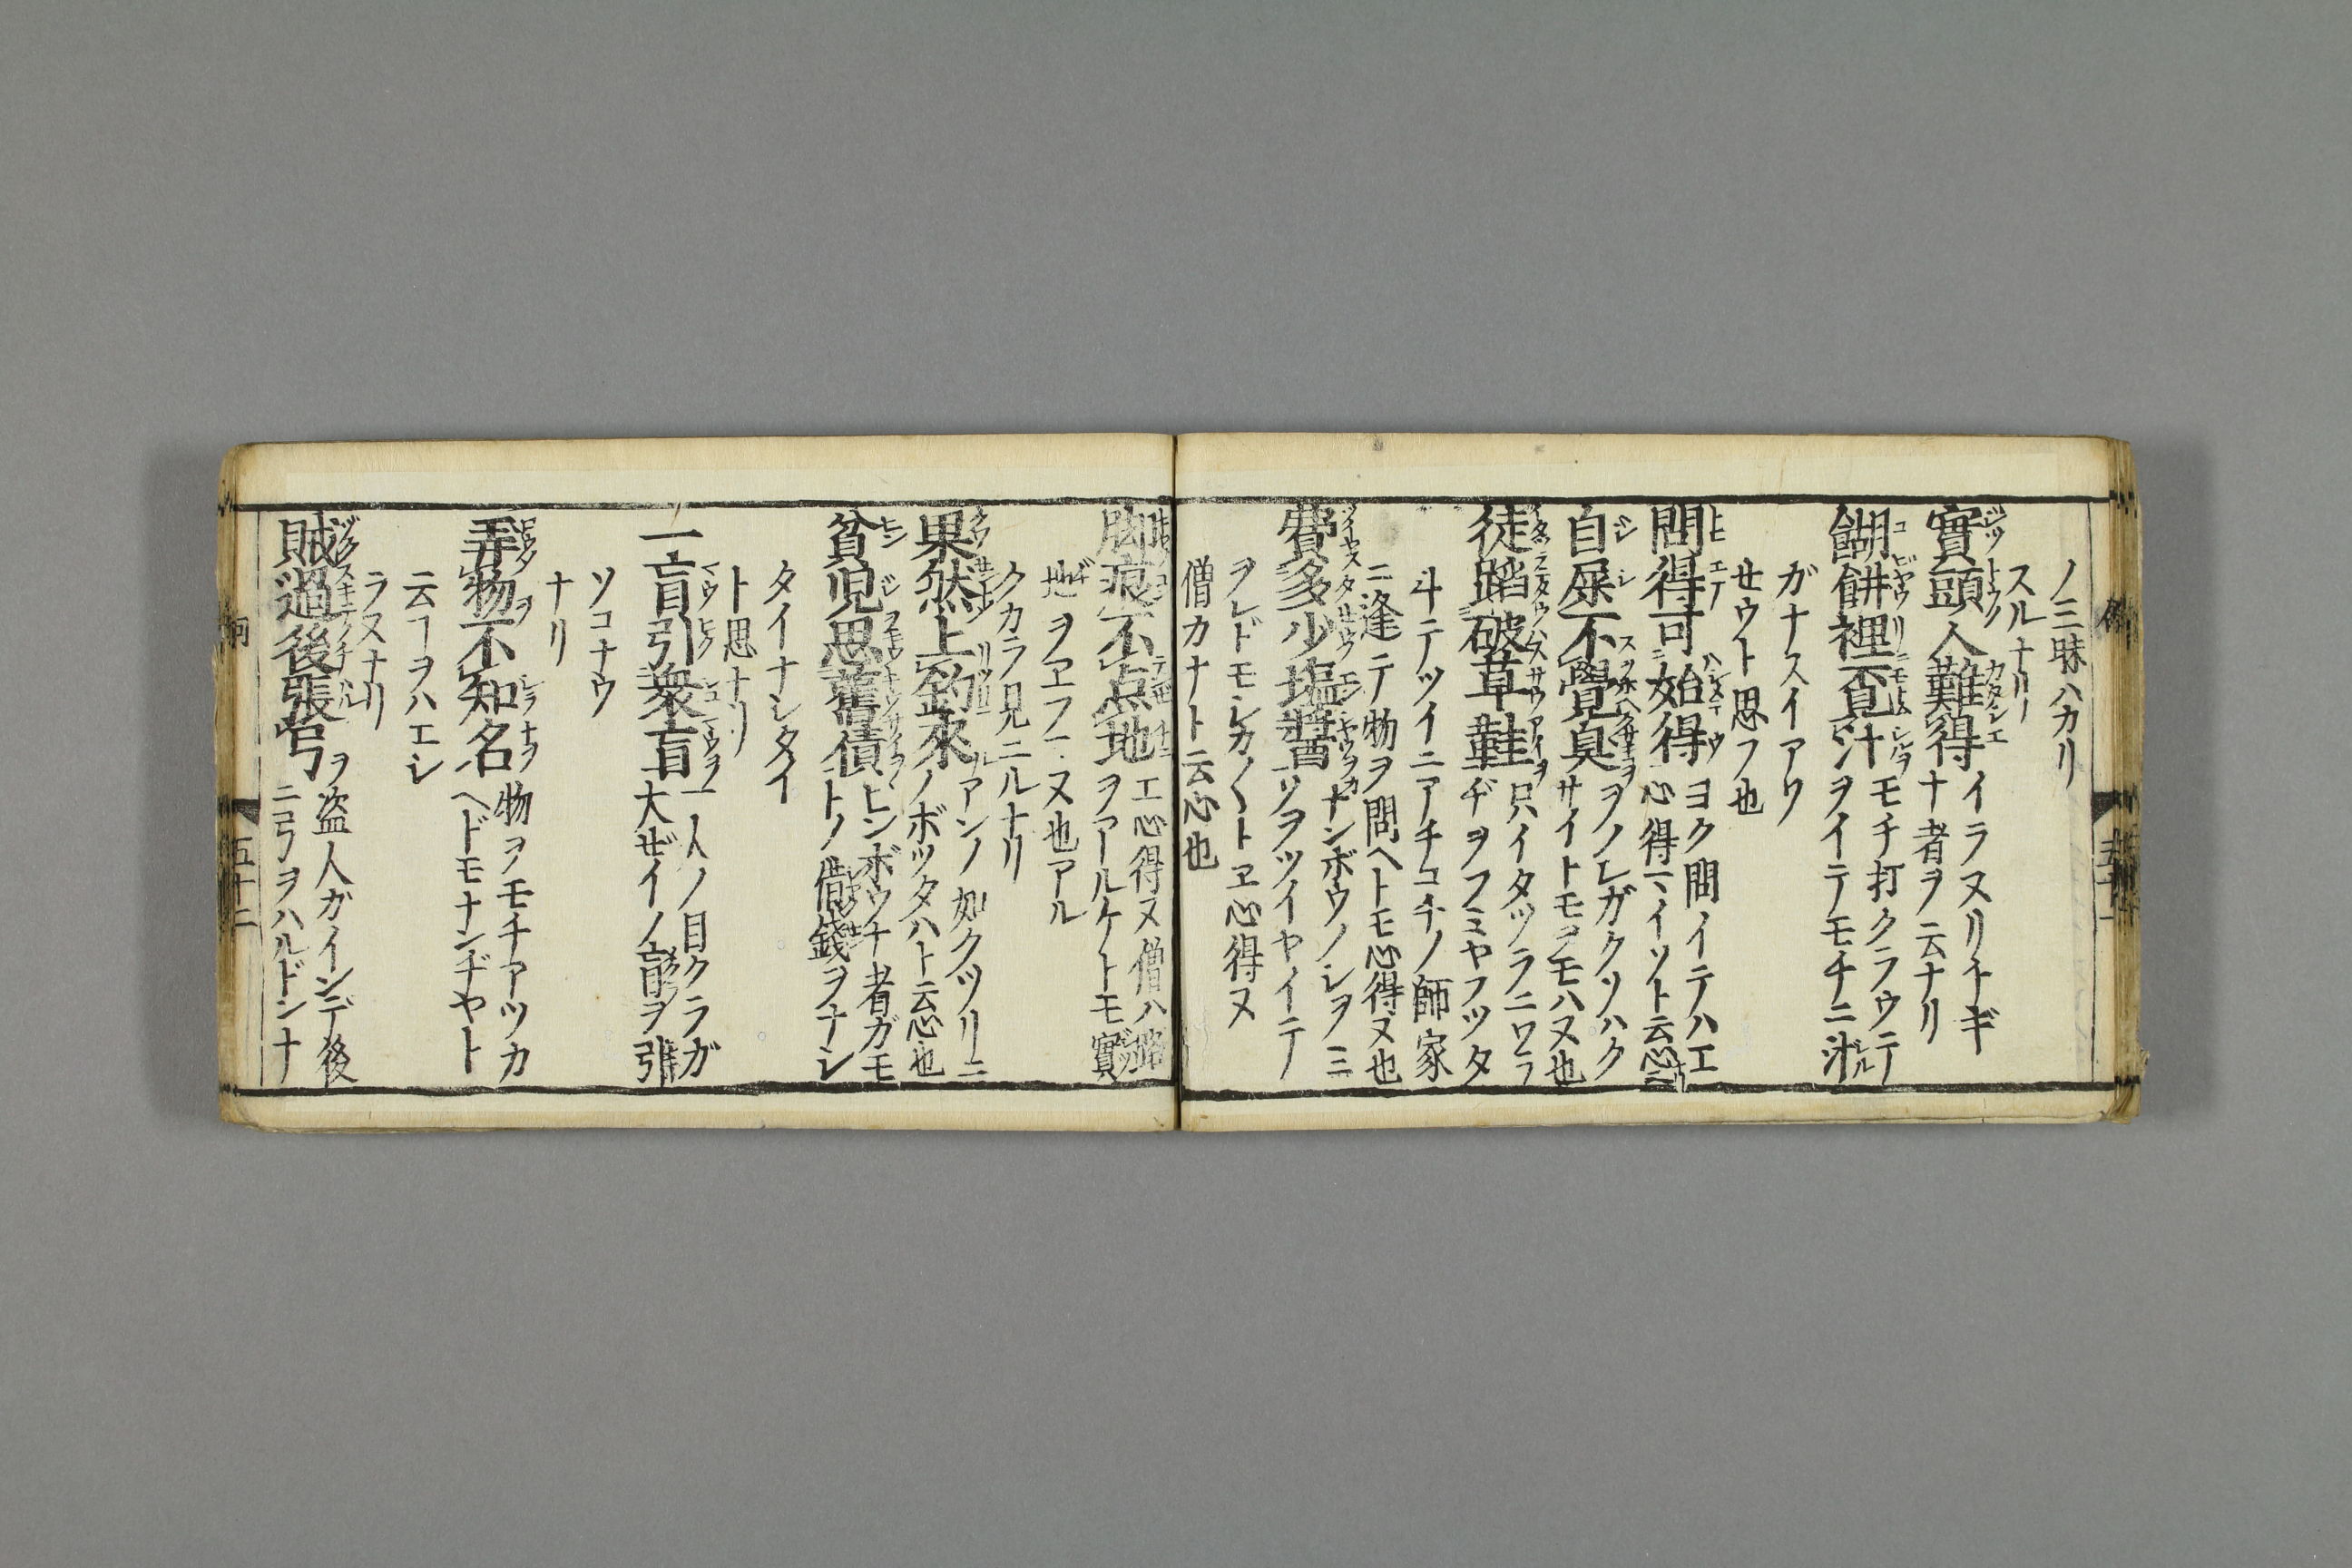 ノ三昧ハカリ
スルナリ
實頭人難得イラヌリチギ
ナ者ヲ云ナリ
餬餅裡覓汁モチ打クラウテ
ヲイテモチニ汁
ガナスイアリ
サウト思フ也
問得可始得ヨク問イテハエ
心得マイソト云心ニ
自屎不覺臭ヲノレガクソハク
サイトモヲモハヌ也
徒踏破草鞋只イタツラニワラ
ヂヲフミヤフツタ
斗テツイニアチコチノ師家
ニ逢テ物ヲ問ヘトモ心得ヌ也
費多少塩醬ナンボウノシヲミ
ソヲツイヤイテ
ヲレドモシカ〱トヱ心得ヌ
僧カナト云心也
脚痕不点地エ心得ヌ僧ハ路
ヲアールケトモ實
地ヲヱフマヌ也アル
クカラ見ニルナリ
果然上釣來アンノ如クツリニ
ノボツタハト云心也
貧児思舊債ヒンボウナ者ガモ
トノ借錢ヲナシ
タイナシタイ
ト思ナリ
一盲引衆盲一人ノ目クラガ
大ゼイノ盲ヲ引
ソコナウ
ナリ
弄物不知名物ヲモチアツカ
ヘドモナンヂヤト
云ヿヲハエシ
ラヌナリ
賊過後張弓盗人ガインデ後
ニ弓ヲハルドンナ
五十二